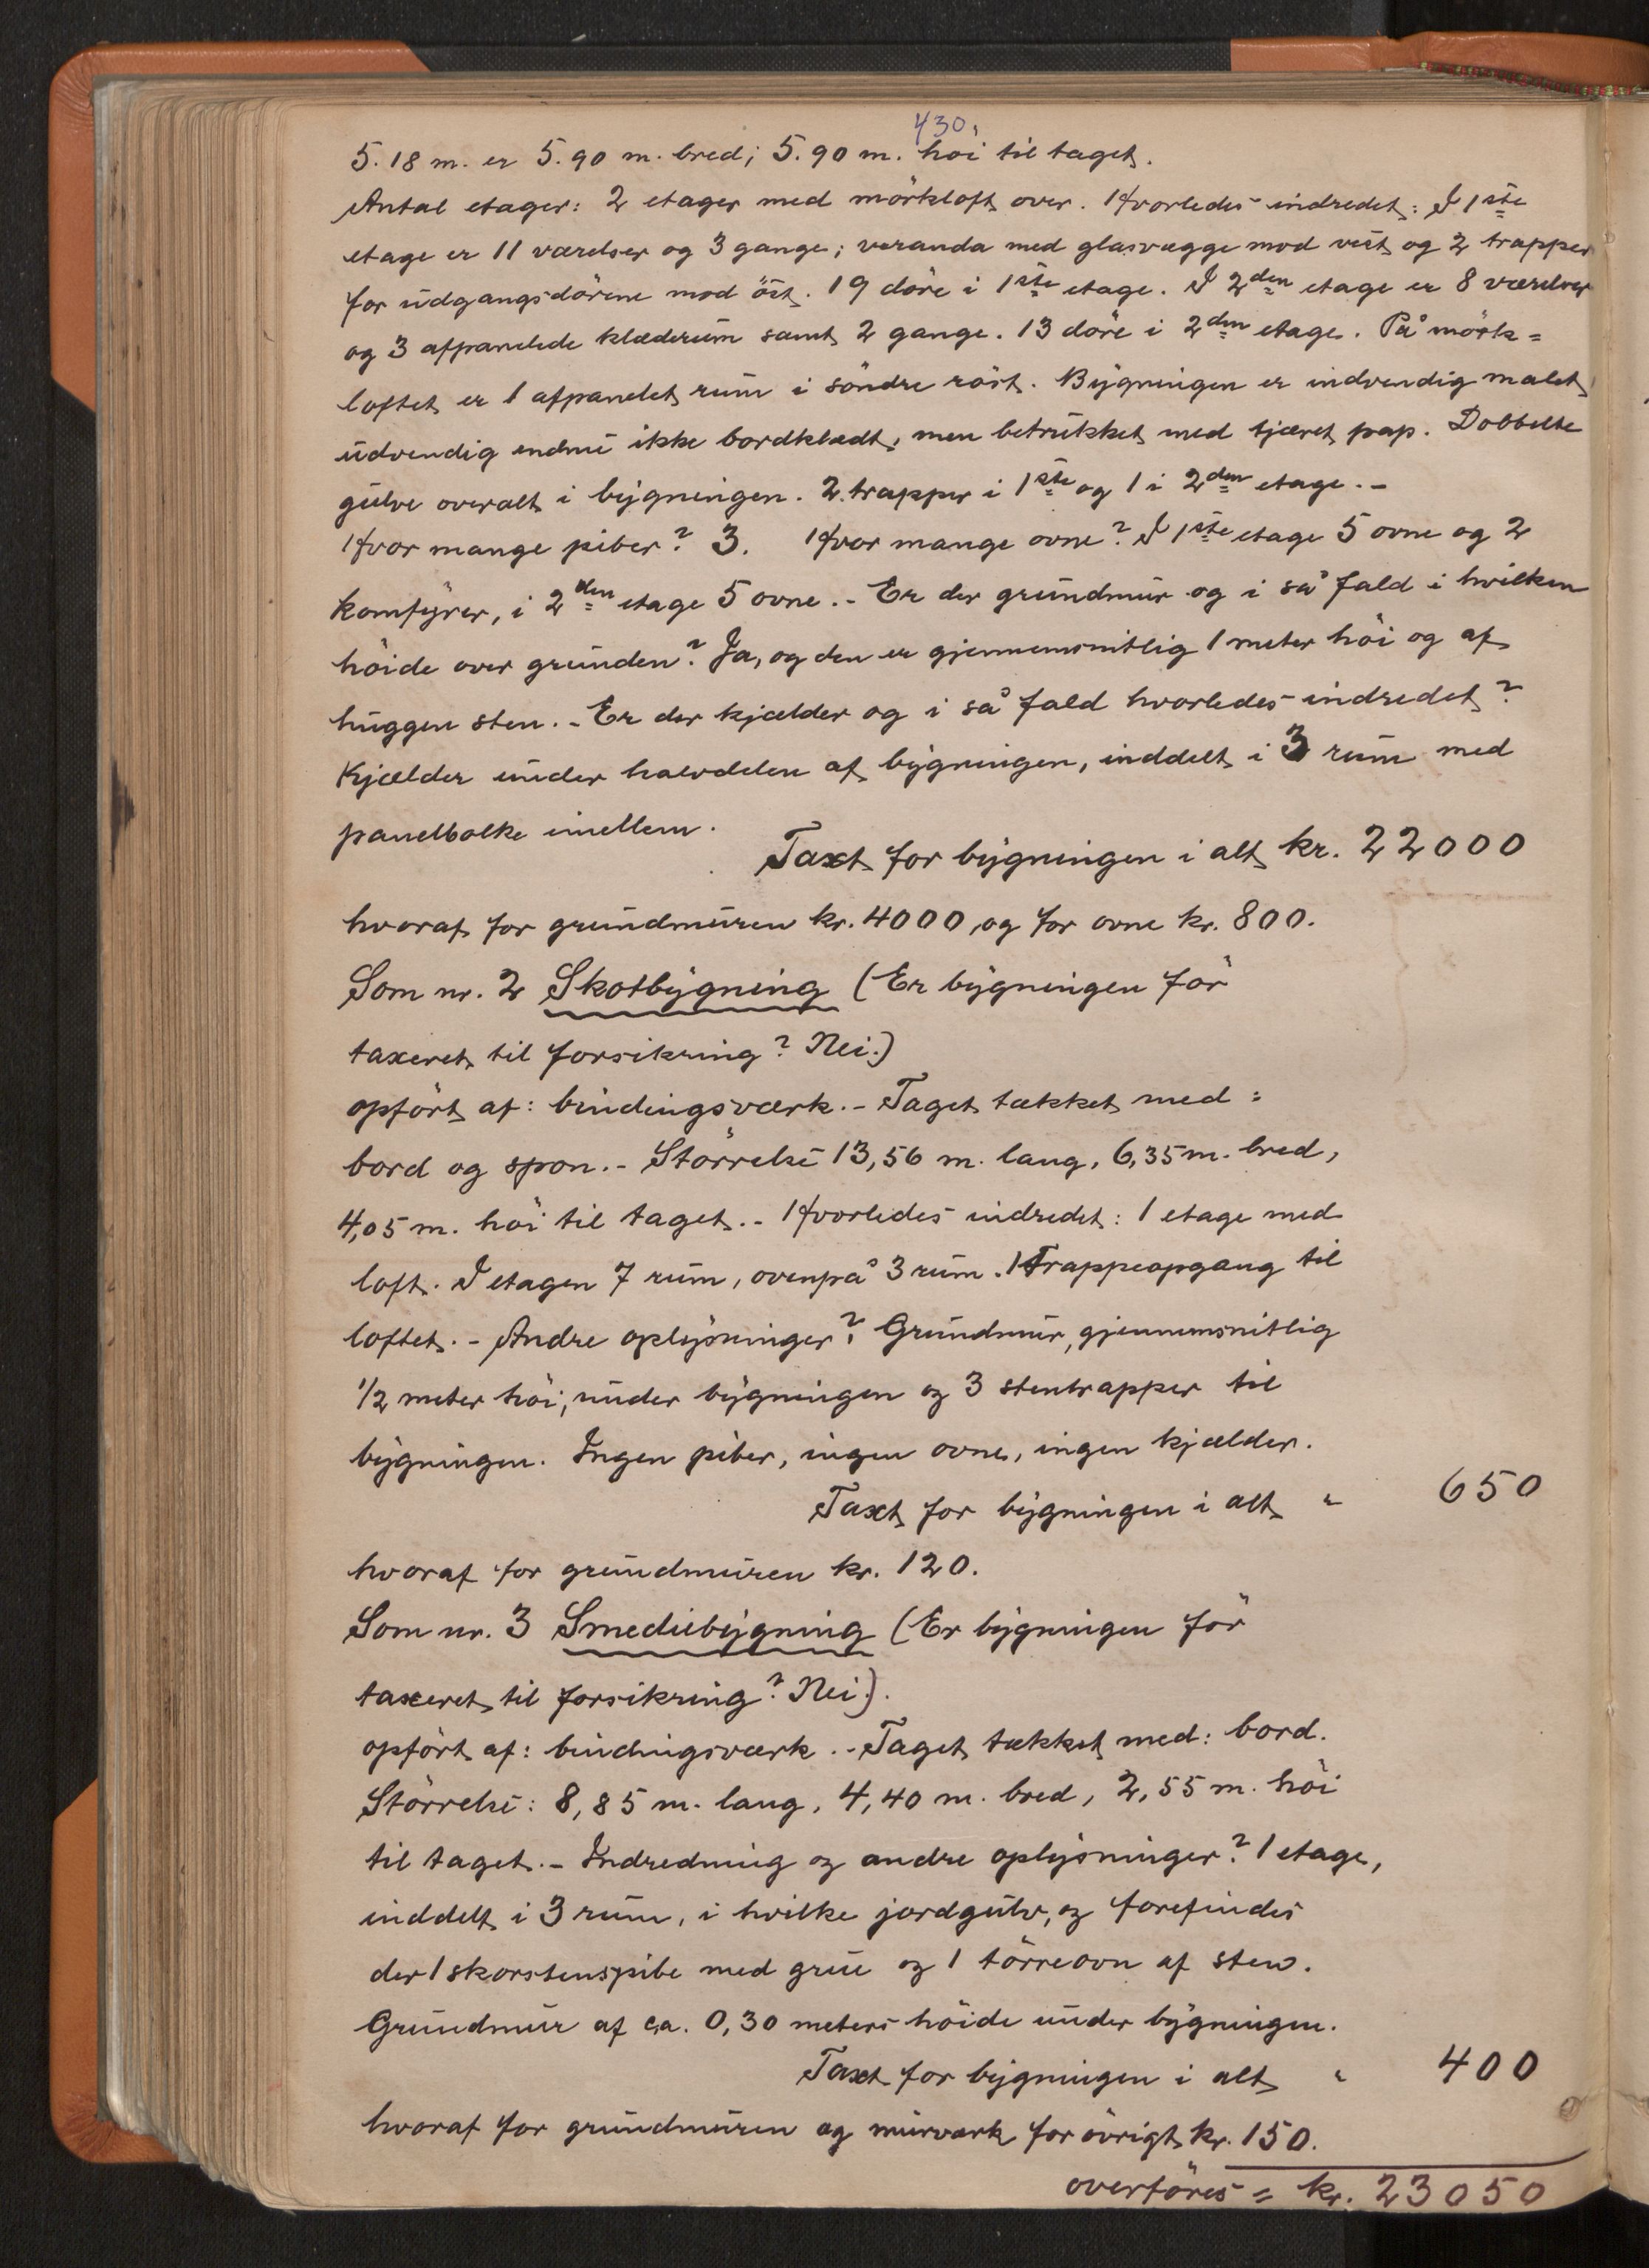 430,
5.18 m. er 5.90 m. bred; 5.90 m. höi til taget.
Antal etager: 2 etager med mörkloft over. Hvorledes indredet: I 1ste
etage er 11 værelser og 3 gange; veranda med glasvægge mod vest og 2 trapper
for udgangsdörene mod öst. 19 döre i 1ste etage. I 2den etage er 8 værelser
og 3 afpanelede klæderum samt 2 gange. 13 döre i 2den etage. På mörk=
loftet er 1 afpanelet rum i söndre röst. Bygningen er indvendig malet,
udvendig endnu ikke bordklædt, men betrukket med tjæret pap. Dobbelte
gulve overalt i bygningen. 2 trapper i 1ste og 1 i 2den etage. -
Hvor mange piber? 3. Hvor mange ovne? I 1ste etage 5 ovne og 2
komfyrer, i 2den etage 5 ovne. - Er der grundmur og i så fald i hvilken
höide over grunden? Ja, og den er gjennemsnitlig 1 meter höi og af
huggen sten. - Er der kjælder og i så fald hvorledes indredet?
Kjælder under halvdelen af bygningen, inddelt i 3 rum med
panelbolke imellem.
Taxt for bygningen i alt kr. 22000
hvoraf for grundmuren kr. 4000, og for ovne kr. 800.
Som nr. 2 Skotbygning (Er bygningen för
taxeret til forsikring? Nei.)
opfört af: bindingsværk. - Taget tækket med:
bord og spon. - Störrelse 13,56 m. lang, 6,35 m. bred,
4,05 m. höi til taget. - Hvorledes indredet: 1 etage med
loft. I etagen 7 rum, ovenpå 3 rum. 1 Trappeopgang til
loftet. - Andre oplysninger? Grundmur, gjennemsnitlig
1/2 meter höi, under bygningen og 3 stentrapper til
bygningen. Ingen piber, ingen ovne, ingen kjælder.
Taxt for bygningen i alt " 650
hvoraf for grundmuren kr. 120.
Som nr. 3 Smediebygning (Er bygningen för
taxeret til forsikring? Nei.).
opfört af: bindingsværk. - Taget tækket med: bord.
Störrelse: 8,85 m. lang, 4,40 m. bred, 2,55 m. höi
til taget. - Indredning og andre oplysninger? 1 etage,
inddelt i 3 rum, i hvilke jordgulv, og forefindes
der 1 skorstenspibe med grue og 1 törreovn af sten.
Grundmur af ca. 0,30 meters höide under bygningen.
Taxt for bygningen i alt " 400
hvoraf for grundmuren og murværk forövrigt kr. 150.
overföres = kr. 23050